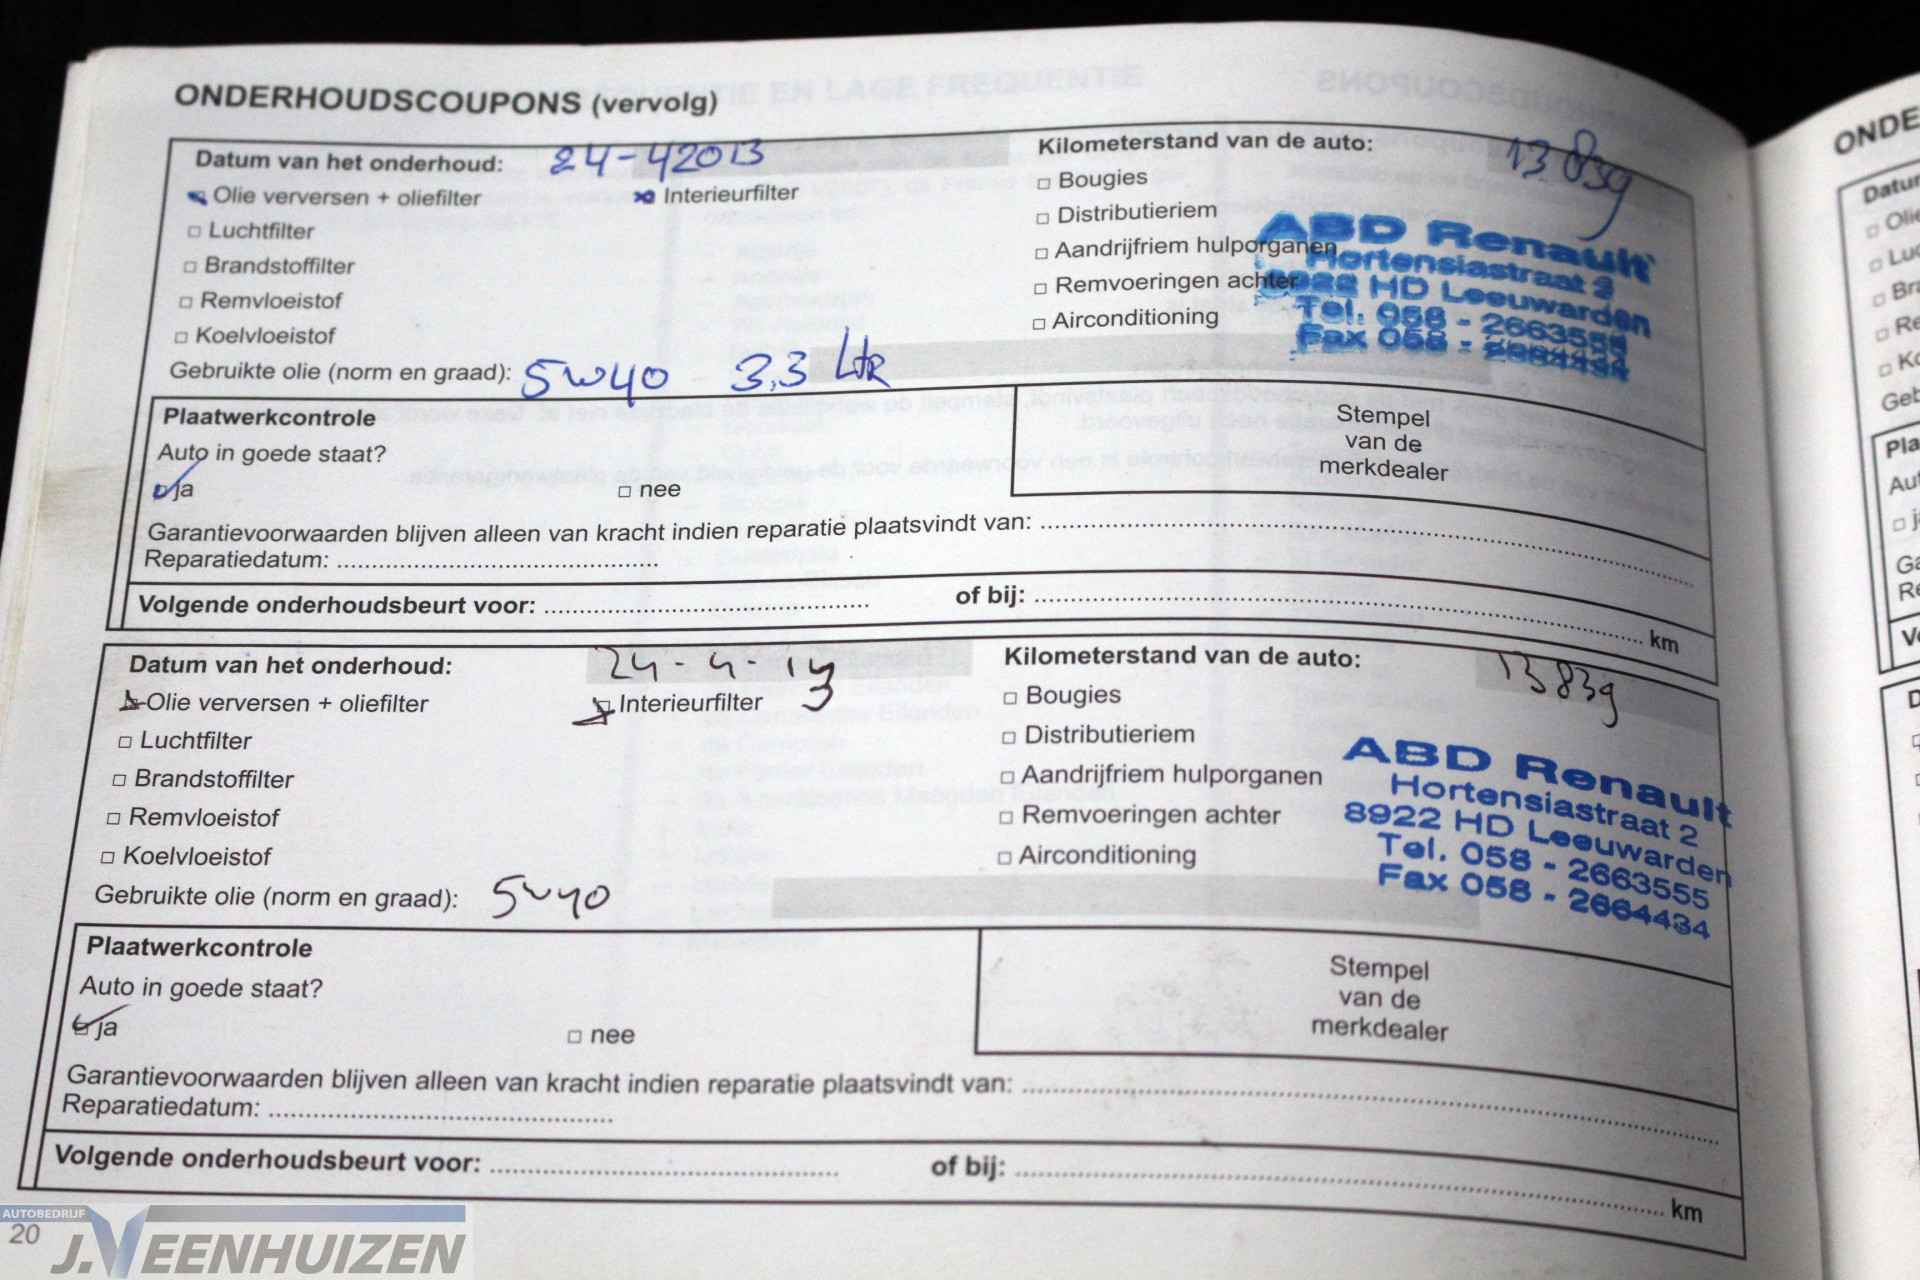 ONDERHOUDSCOUPONS (vervolg)
Datum van het onderhoud: 24-42013 Kilometerstand van de auto: 13839
Olie verversen + oliefilter Interieurfilter Bougies
Luchtfilter Distributieriem
Brandstoffilter Aandrijfriem hulporganen
Remvloeistof Remvoeringen achter
Koelvloeistof Airconditioning
ABD Renault
Hortensiastraat 2
8922 HD Leeuwarden
Tel. 058 - 2663555
Fax 058 - 2664434
Gebruikte olie (norm en graad): 5W40 3,3 Ltr
Plaatwerkcontrole
Auto in goede staat?
ja nee
Stempel
van de
merkdealer
Garantievoorwaarden blijven alleen van kracht indien reparatie plaatsvindt van:
Reparatiedatum:
Volgende onderhoudsbeurt voor: of bij: km
Datum van het onderhoud: 24-4-13 Kilometerstand van de auto: 13839
Olie verversen + oliefilter Interieurfilter Bougies
Luchtfilter Distributieriem
Brandstoffilter Aandrijfriem hulporganen
Remvloeistof Remvoeringen achter
Koelvloeistof Airconditioning
ABD Renault
Hortensiastraat 2
8922 HD Leeuwarden
Tel. 058 - 2663555
Fax 058 - 2664434
Gebruikte olie (norm en graad): 5W40
Plaatwerkcontrole
Auto in goede staat?
ja nee
Stempel
van de
merkdealer
Garantievoorwaarden blijven alleen van kracht indien reparatie plaatsvindt van:
Reparatiedatum:
Volgende onderhoudsbeurt voor: of bij: km
20
AUTOBEDRIJF
J.VEENHUIZEN